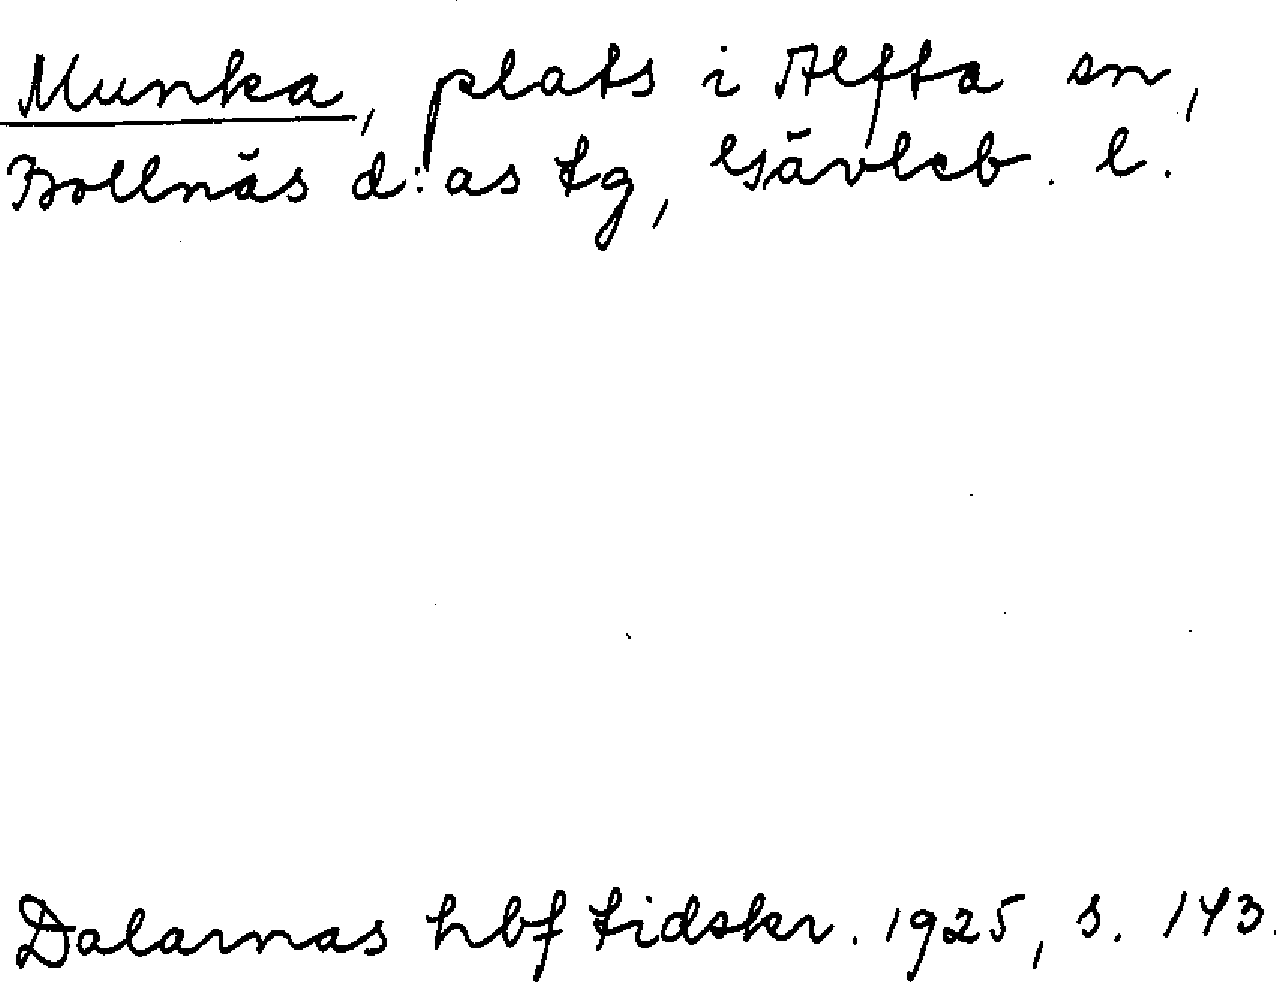 Munka, plats i Alfta sn,
Bollnäs d:as tg, Gävleb. l.
Dalarnas hbf tidskr. 1925, s. 143.